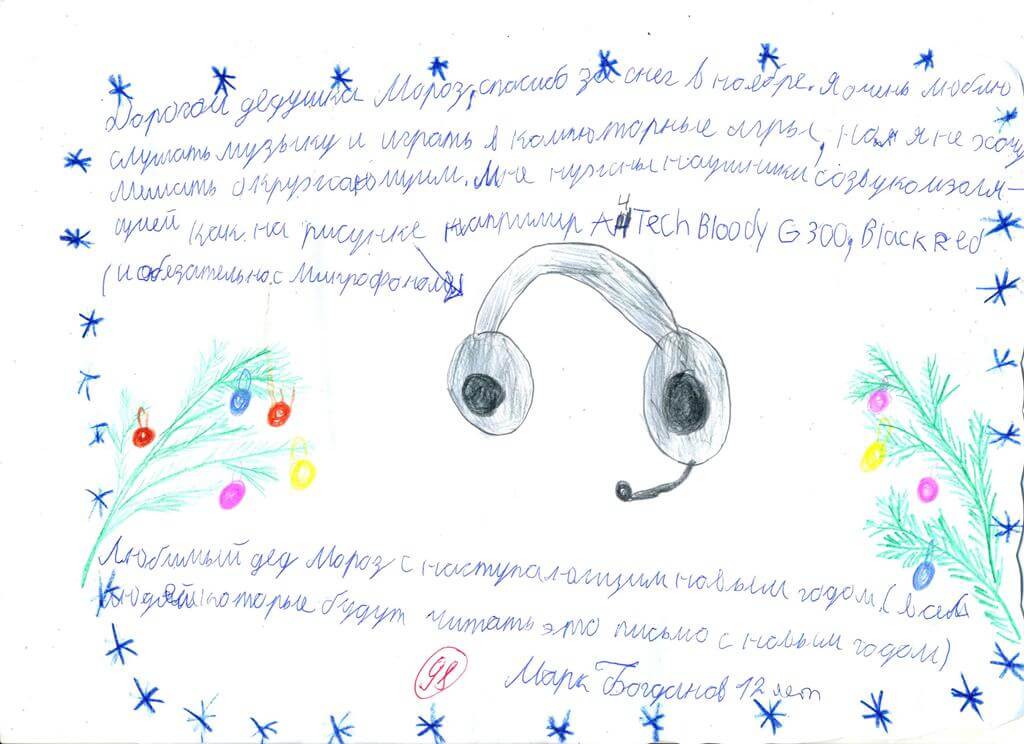 Дорогой дедушка Мороз, спасибо за снег в ноябре. Я очень люблю
слушать музыку и играть в компюторные игры, но я не хочу
мешать окружающим. Мне нужны наушники созвукоизоля-
цией как на рисунке например A4Tech Bloody G300, Black Red
(и обязательно с микрофоном)
Любимый дед Мороз с наступающим новым годом (и всех
людей которые будут читать это письмо с новым годом)
98
Марк Богданов 12 лет